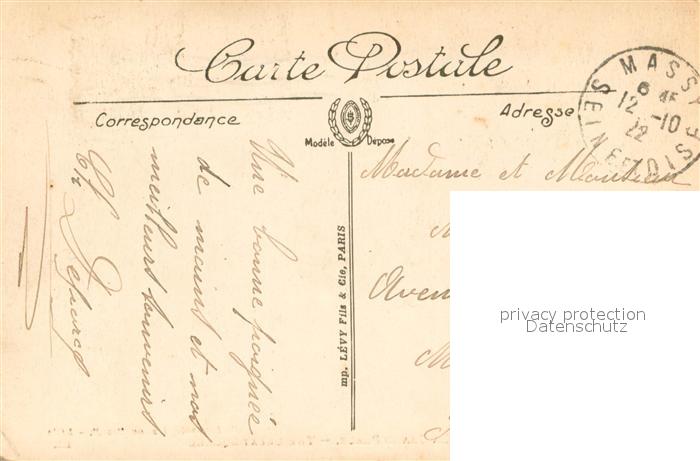 Carte Postale
Correspondance
Adresse
Modèle Déposé
MASSY
6 45
12 -10
22
SEINE ET OISE
Une bonne poignée
de mains et nos
meilleurs souvenirs
Madame et Monsieur
Aven
imp. LÉVY Fils & Cie, PARIS
privacy protection
Datenschutz